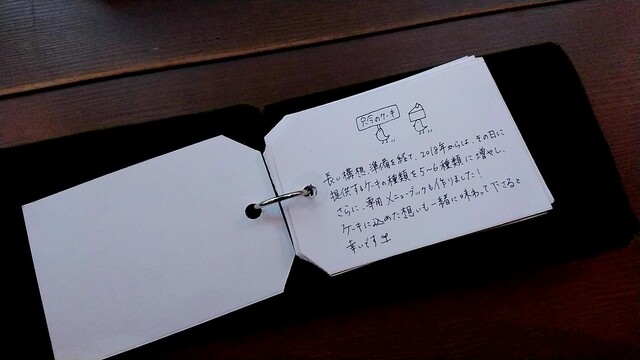 只今のケーキ
長い構想、準備を経て、2018年からは、その日に
提供するケーキの種類を5~6種類に増やし、
さらに、専用メニューブックも作りました!
ケーキに込めた想いも一緒に味わって下さると
幸いです